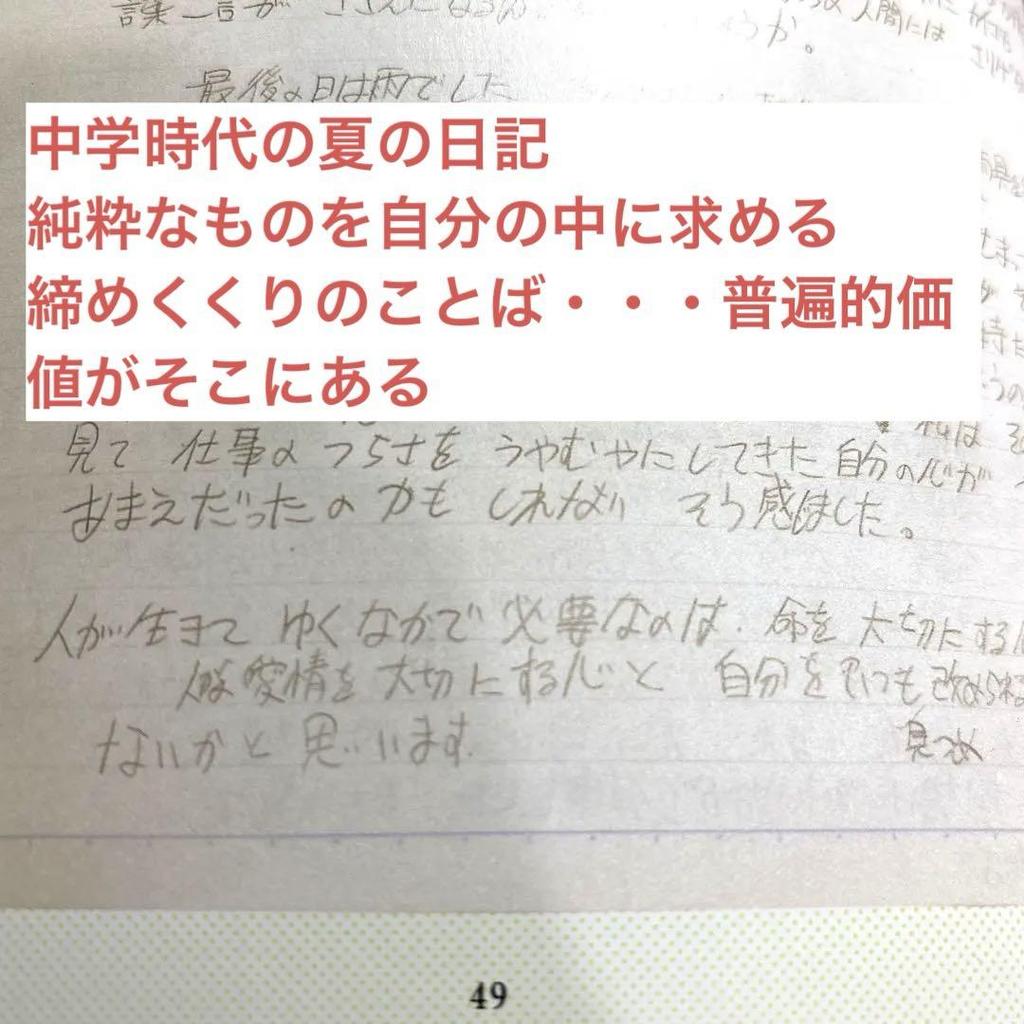 葉一言が ささえになるん
うか。
人間には
最後の日は雨でした
中学時代の夏の日記
純粋なものを自分の中に求める
締めくくりのことば・・・普遍的価
値がそこにある
私は
見て 仕事のつらさを うやむやにしてきた自分の心が
あまえだったのかもしれない そう感じました。
人が生きてゆくなかで必要なのは、命を大切にする心
愛情を大切にする心と 自分を いつも改め
見つめ
ないかと思います。
49